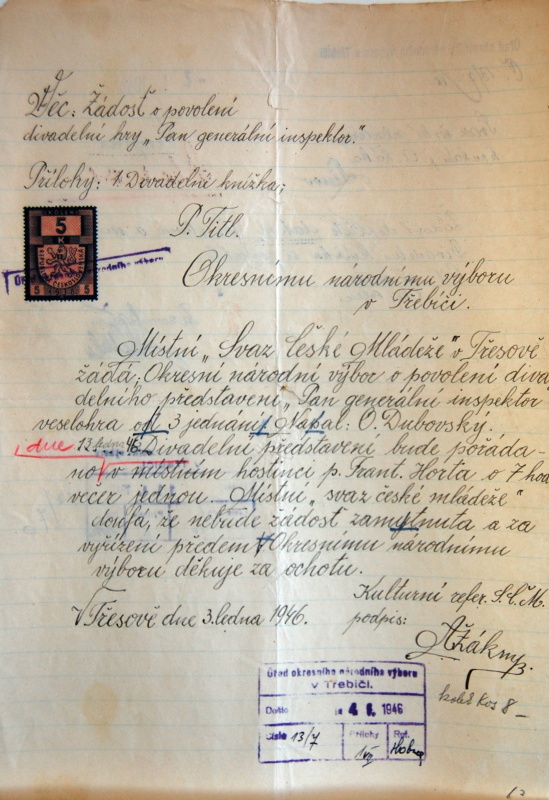 Věc: Žádost o povolení
divadelní hry „Pan generální inspektor."
Přílohy: 1 Divadelní knížka;
P. Titl.
5
K
5 5
Úřad národního výboru
Okresnímu národnímu výboru
v Třebíči.
Místní „Svaz České Mládeže" v Třesově
žádá: Okresní národní výbor o povolení diva
delního představení „Pan generální inspektor
veselohra o 3 jednání. Napsal: O. Dubovský.
dne 13. ledna 46. Divadelní představení bude pořádá-
no v místním hostinci p. Frant. Horta o 7 hod
večer jednou. Místní „svaz české mládeže"
doufá, že nebude žádost zamítnuta a za
vyřízení předem Okresnímu národnímu
výboru děkuje za ochotu.
Kulturní refer. S.č.M.
V Třesově dne 3. ledna 1946. podpis:
Kos 8 –
Úřad okresního národního výboru
v Třebíči.
Došlo 4 1946
Číslo 13/7 Přílohy Ref.